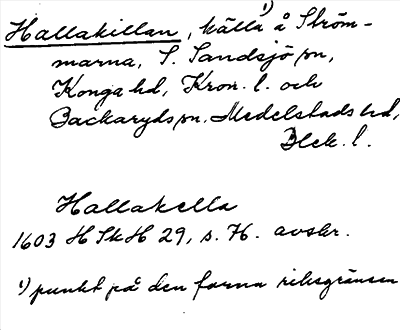 Hallakillan, källa¹) å Ström-
marna, S. Sandsjö sn,
Konga hd, Kron. l. och
Backaryds sn, Medelstads hd,
Blek. l.
Hallakella
1603 HSkH 29, s. 76. avskr.
¹) punkt på den forna riksgränsen